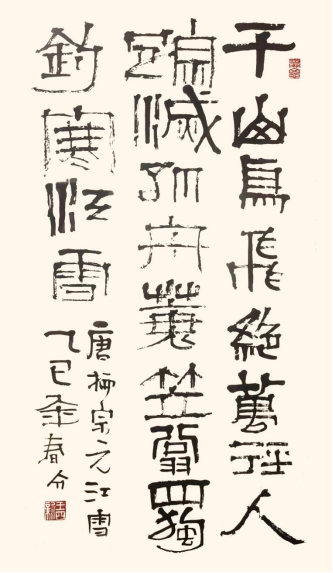 千山鳥飛絶萬徑人
踪滅孤舟蓑笠翁獨
釣寒江雪
唐柳宗元江雪
乙巳年春分